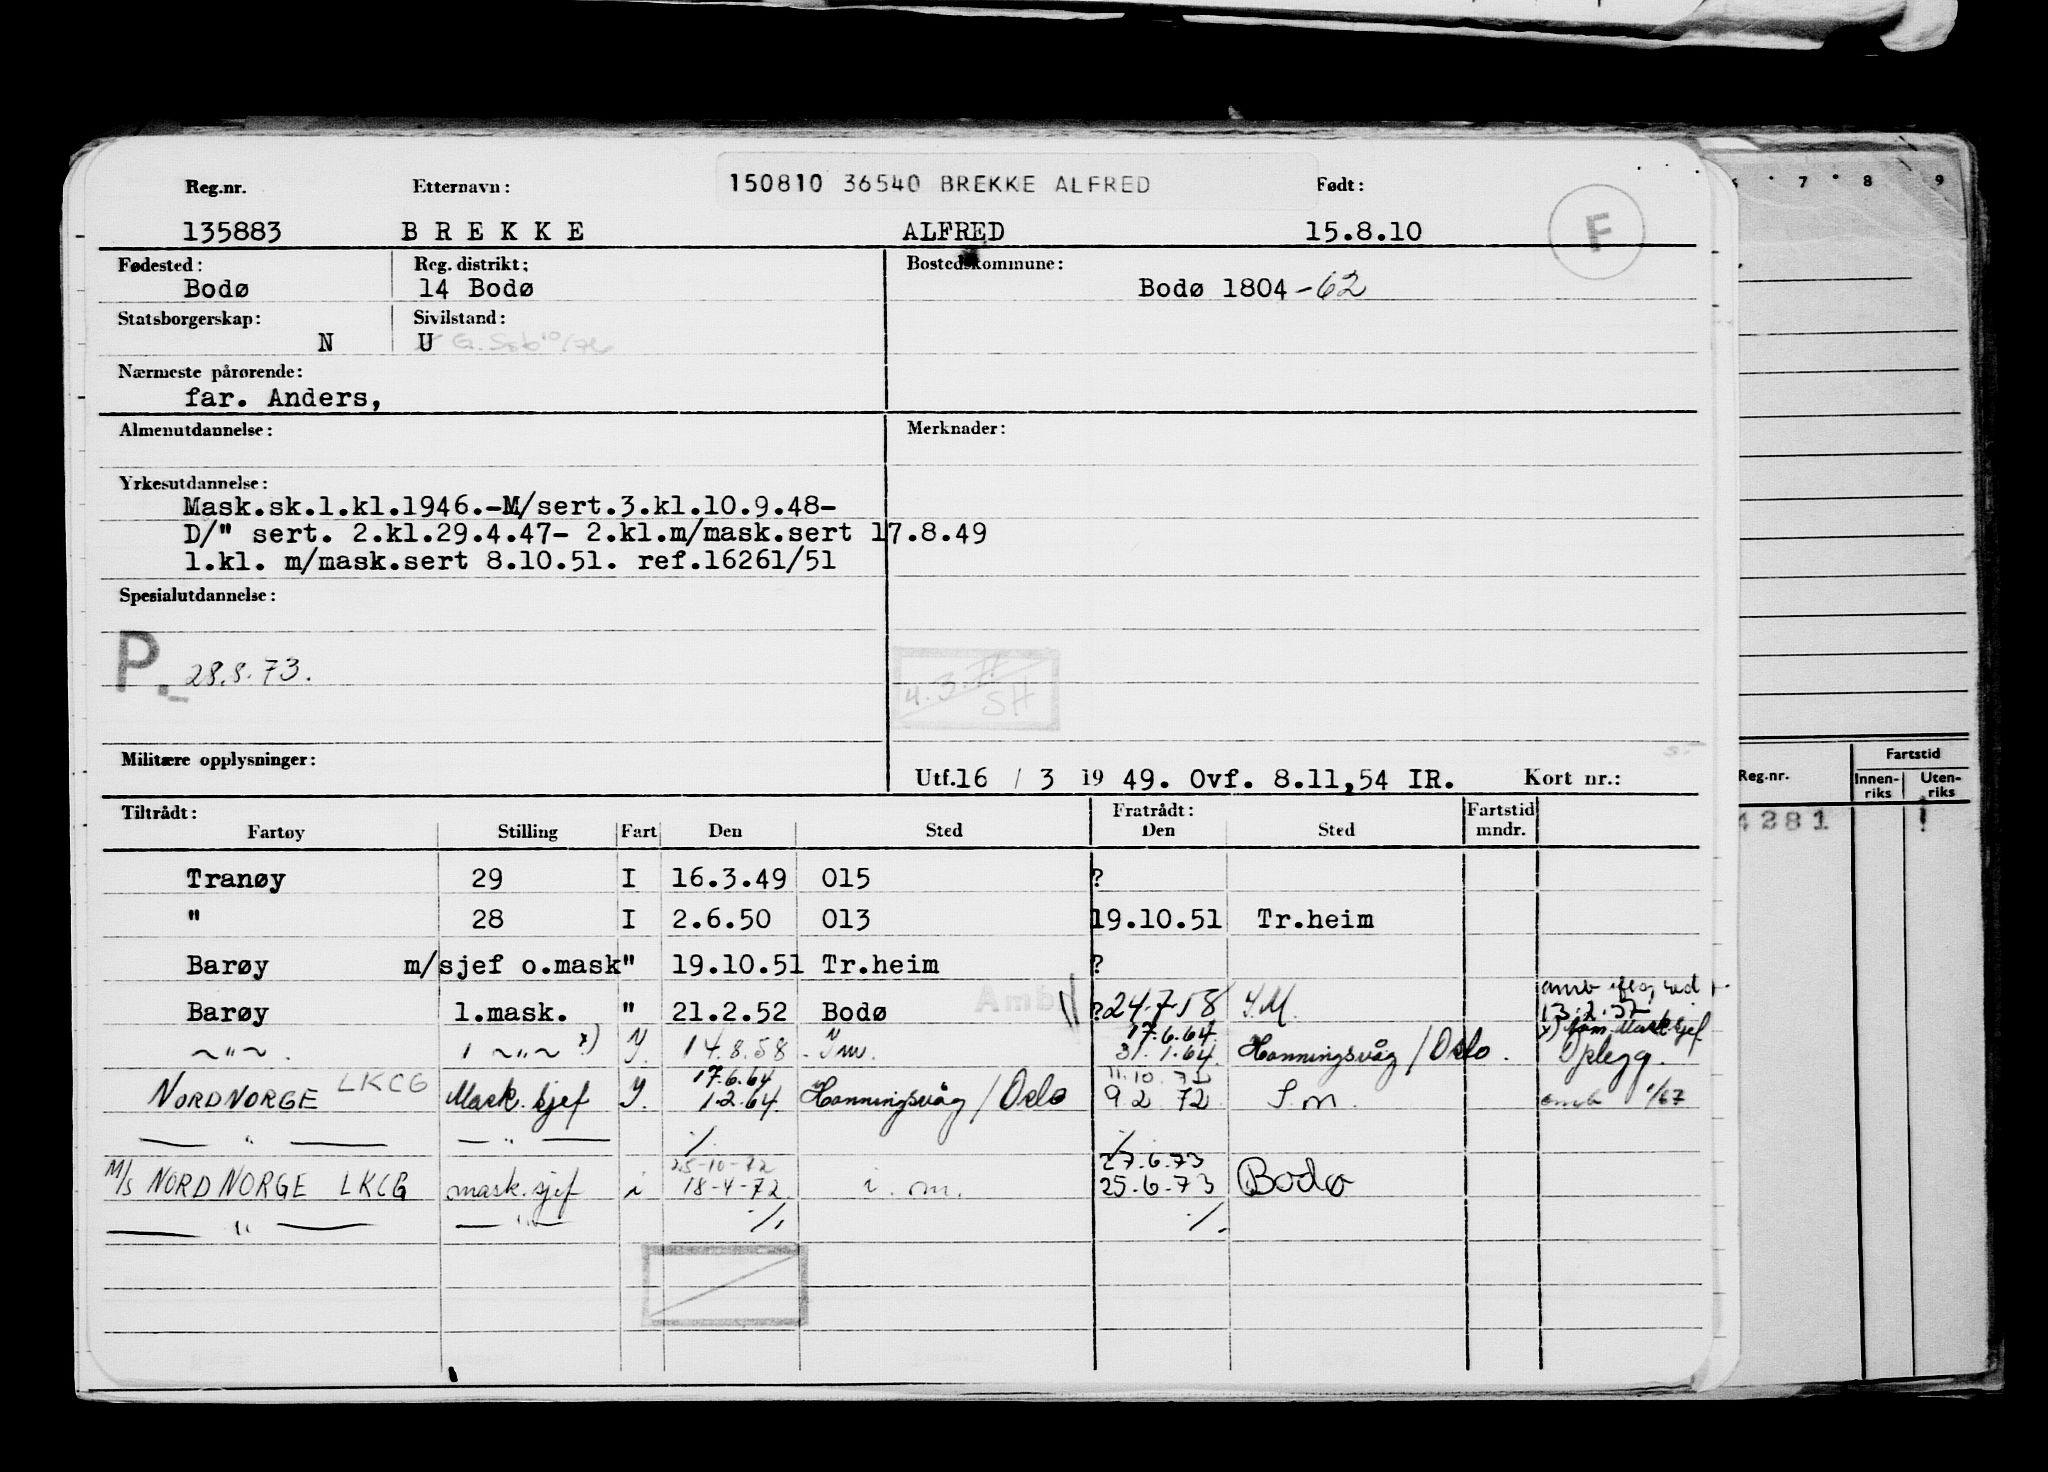 Reg.nr. Etternavn: 150810 36540 BREKKE ALFRED Født:
135883 B R E K K E ALFRED 15.8.10 F
Fødested: Reg. distrikt: Bostedskommune:
Bodø 14 Bodø Bodø 1804 -62
Statsborgerskap: Sivilstand:
N U
Nærmeste pårørende:
far. Anders,
Almenutdannelse: Merknader:
Yrkesutdannelse:
Mask.sk.1.kl.1946.-M/sert.3.kl.10.9.48-
D/" sert. 2.kl.29.4.47- 2.kl.m/mask.sert 17.8.49
1.kl. m/mask.sert 8.10.51. ref.16261/51
Spesialutdannelse:
P.- 28.8.73.
SH
Militære opplysninger:
Utf.16 / 3 19 49. Ovf. 8.11,54 IR. Kort nr.:
Tiltrådt: Fratrådt: Fartstid
Fartøy Stilling Fart Den Sted Den Sted mndr.
Tranøy 29 I 16.3.49 015 ?
" 28 I 2.6.50 013 19.10.51 Tr.heim
Barøy m/sjef o.mask " 19.10.51 Tr.heim ?
Barøy 1.mask. " 21.2.52 Bodø ? 24.7.58 I.M.
~"~. 1 ~"~ x) I. 14.8.58 Im.
17.6.64.
31.1.64. Honningsvåg/Oslo. Oplegg.
NORDNORGE LKCG Mask. sjef I.
17.6.64
1.2.64. Honningsvåg/Oslo
11.10.72
9.2 72 I.m. omb 1/67
— " — — " — ·/. ·/.
M/S NORD NORGE LKCG mask.sjef i
25-10-72
18-4-72 i.m.
27.6.73
25.6.73 Bodø
— " — — " — ·/. ·/.
7 8 9
Fartstid
Reg.nr. Innen- Uten-
riks riks
4281